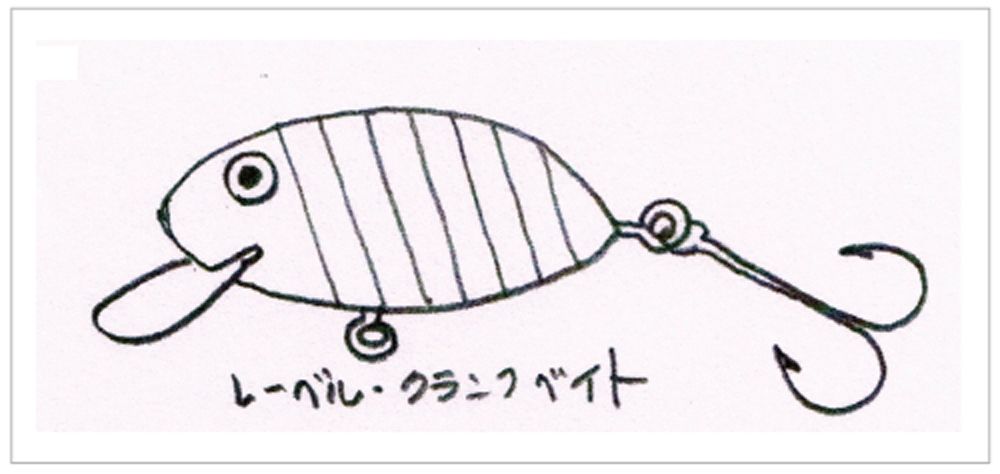 レーベル・クランクベイト